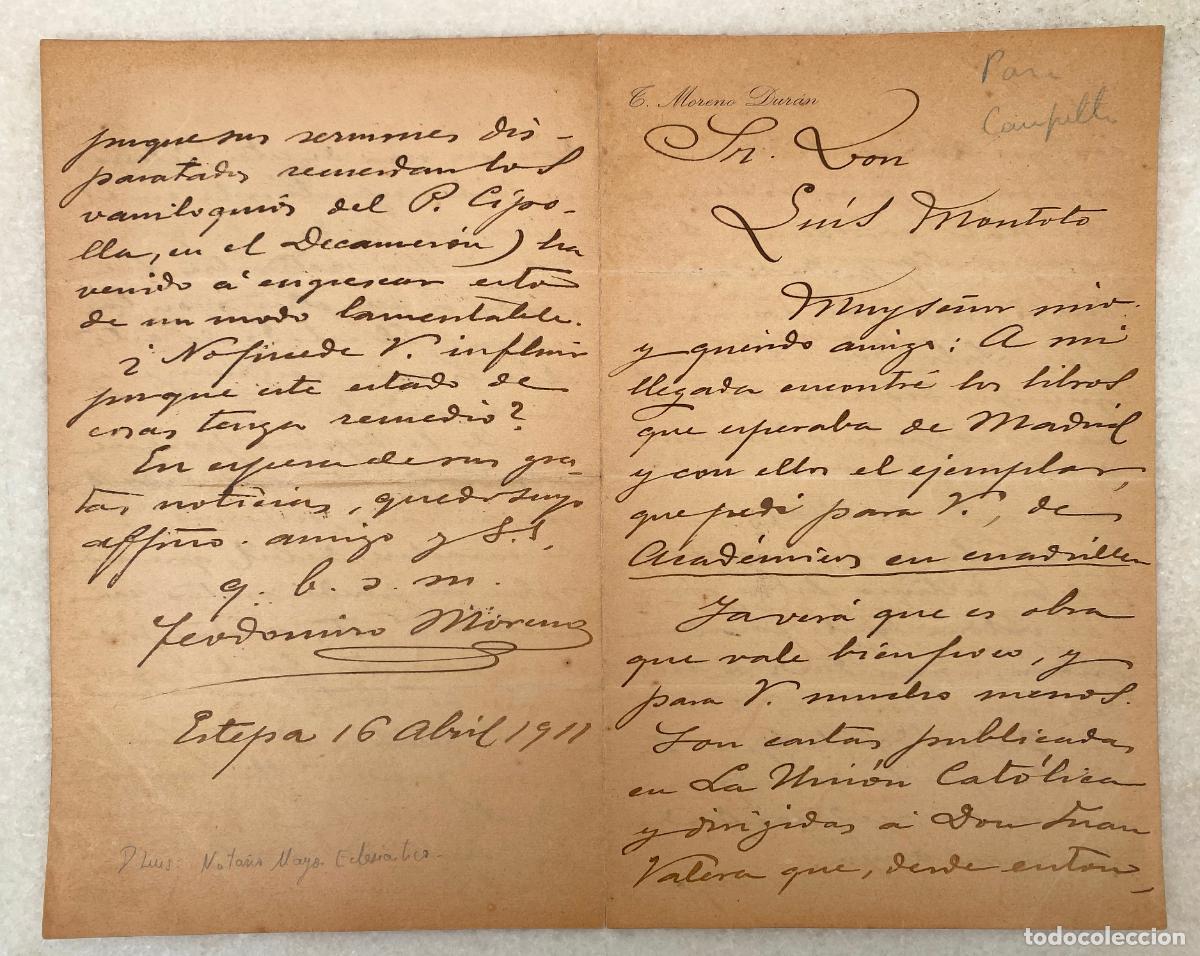 T. Moreno Durán
Para
Campillo
Sr. Don
Luís Montoto
Muy señor mio
y querido amigo: A mi
llegada encontré los libros
que esperaba de Madrid
y con ellos el ejemplar,
que pedí para V., de
Académicos en cuadrilla
Ya verá que es obra
que vale bien poco, y
para V. mucho menos.
Son cartas publicadas
en La Unión Católica
y dirigidas á Don Juan
Valera que, desde enton,
porque sus sermones dis-
paratados recuerdan los
vaniloquios del P. Cipo-
lla, en el Decamerón) ha
venido á engrescar esto
de un modo lamentable.
¿No puede V. influir
porque este estado de
cosas tenga remedio?
En espera de sus gra-
tas noticias, queda suyo
affmo. amigo y S. S.
q. b. s. m.
Teodomiro Moreno
Estepa 16 Abril 1911
D Luis: Notario Mayor Eclesiastico.
todocoleccion